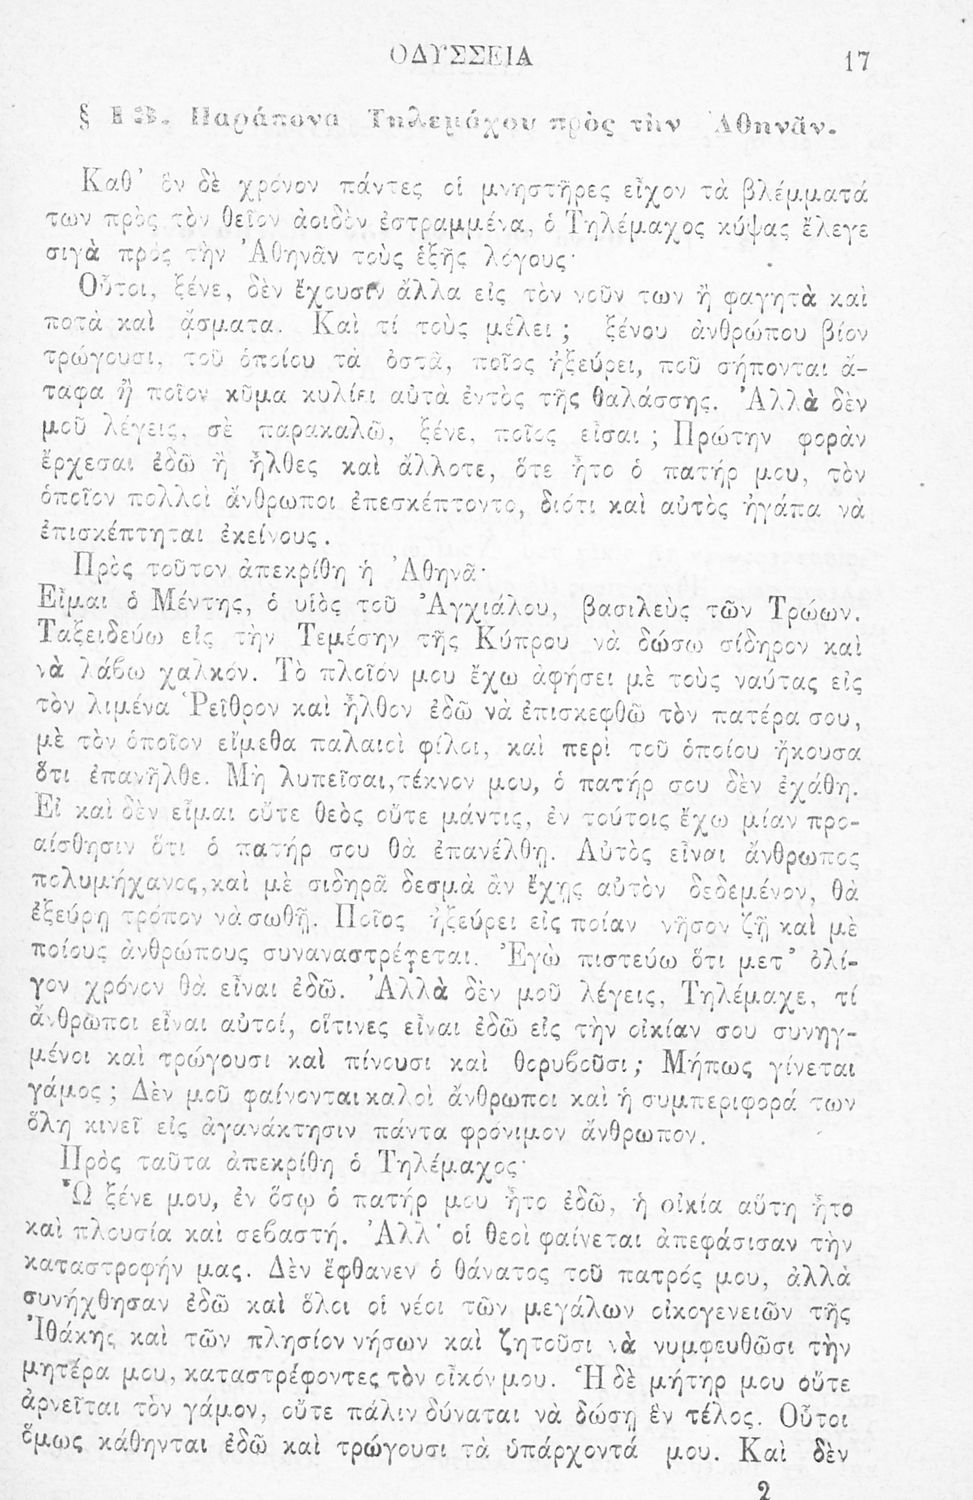 ΟΔΥΣΣΕΙΑ 17
§ 13. Παράπονα Τηλεμάχου πρὸς τὴν Ἀθηνᾶν.
Καθ’ ὃν δὲ χρόνον πάντες οἱ μνηστῆρες εἶχον τὰ βλέμματά
των πρὸς τὸν θεῖον ἀοιδὸν ἐστραμμένα, ὁ Τηλέμαχος κύψας ἔλεγε
σιγὰ πρὸς τὴν Ἀθηνᾶν τοὺς ἑξῆς λόγους·
Οὗτοι, ξένε, δὲν ἔχουσιν ἄλλα εἰς τὸν νοῦν των ἢ φαγητὰ καὶ
ποτὰ καὶ ᾄσματα. Καὶ τί τοὺς μέλει ; ξένου ἀνθρώπου βίον
τρώγουσι, τοῦ ὁποίου τὰ ὀστᾶ, ποῖος ἠξεύρει, ποῦ σήπονται ἄ-
ταφα ἢ ποῖον κῦμα κυλίει αὐτὰ ἐντὸς τῆς θαλάσσης. Ἀλλὰ δὲν
μοῦ λέγεις, σὲ παρακαλῶ, ξένε, ποῖος εἶσαι ; Πρώτην φορὰν
ἔρχεσαι ἐδῶ ἢ ἦλθες καὶ ἄλλοτε, ὅτε ἦτο ὁ πατήρ μου, τὸν
ὁποῖον πολλοὶ ἄνθρωποι ἐπεσκέπτοντο, διότι καὶ αὐτὸς ἠγάπα νὰ
ἐπισκέπτηται ἐκείνους.
Πρὸς τοῦτον ἀπεκρίθη ἡ Ἀθηνᾶ·
Εἶμαι ὁ Μέντης, ὁ υἱὸς τοῦ Ἀγχιάλου, βασιλεὺς τῶν Τρώων.
Ταξειδεύω εἰς τὴν Τεμέσην τῆς Κύπρου νὰ δώσω σίδηρον καὶ
νὰ λάβω χαλκόν. Τὸ πλοῖόν μου ἔχω ἀφήσει μὲ τοὺς ναύτας εἰς
τὸν λιμένα Ῥεῖθρον καὶ ἦλθον ἐδῶ νὰ ἐπισκεφθῶ τὸν πατέρα σου,
μὲ τὸν ὁποῖον εἴμεθα παλαιοὶ φίλοι, καὶ περὶ τοῦ ὁποίου ἤκουσα
ὅτι ἐπανῆλθε. Μὴ λυπεῖσαι, τέκνον μου, ὁ πατήρ σου δὲν ἐχάθη.
Εἰ καὶ δὲν εἶμαι οὔτε θεὸς οὔτε μάντις, ἐν τούτοις ἔχω μίαν προ-
αίσθησιν ὅτι ὁ πατήρ σου θὰ ἐπανέλθῃ. Αὐτὸς εἶναι ἄνθρωπος
πολυμήχανος, καὶ μὲ σιδηρᾶ δεσμὰ ἂν ἔχῃς αὐτὸν δεδεμένον, θὰ
ἐξεύρῃ τρόπον νὰ σωθῇ. Ποῖος ἠξεύρει εἰς ποίαν νῆσον ζῇ καὶ μὲ
ποίους ἀνθρώπους συναναστρέφεται. Ἐγὼ πιστεύω ὅτι μετ’ ὀλί-
γον χρόνον θὰ εἶναι ἐδῶ. Ἀλλὰ δὲν μοῦ λέγεις, Τηλέμαχε, τί
ἄνθρωποι εἶναι αὐτοί, οἵτινες εἶναι ἐδῶ εἰς τὴν οἰκίαν σου συνηγ-
μένοι καὶ τρώγουσι καὶ πίνουσι καὶ θορυβοῦσι ; Μήπως γίνεται
γάμος ; Δὲν μοῦ φαίνονται καλοὶ ἄνθρωποι καὶ ἡ συμπεριφορά των
ὅλη κινεῖ εἰς ἀγανάκτησιν πάντα φρόνιμον ἄνθρωπον.
Πρὸς ταῦτα ἀπεκρίθη ὁ Τηλέμαχος·
Ὦ ξένε μου, ἐν ὅσῳ ὁ πατήρ μου ἦτο ἐδῶ, ἡ οἰκία αὕτη ἦτο
καὶ πλουσία καὶ σεβαστή. Ἀλλ’ οἱ θεοὶ φαίνεται ἀπεφάσισαν τὴν
καταστροφήν μας. Δὲν ἔφθανεν ὁ θάνατος τοῦ πατρός μου, ἀλλὰ
συνήχθησαν ἐδῶ καὶ ὅλοι οἱ νέοι τῶν μεγάλων οἰκογενειῶν τῆς
Ἰθάκης καὶ τῶν πλησίον νήσων καὶ ζητοῦσι νὰ νυμφευθῶσι τὴν
μητέρα μου, καταστρέφοντες τὸν οἶκόν μου. Ἡ δὲ μήτηρ μου οὔτε
ἀρνεῖται τὸν γάμον, οὔτε πάλιν δύναται νὰ δώσῃ ἓν τέλος. Οὗτοι
ὅμως κάθηνται ἐδῶ καὶ τρώγουσι τὰ ὑπάρχοντά μου. Καὶ δὲν
2